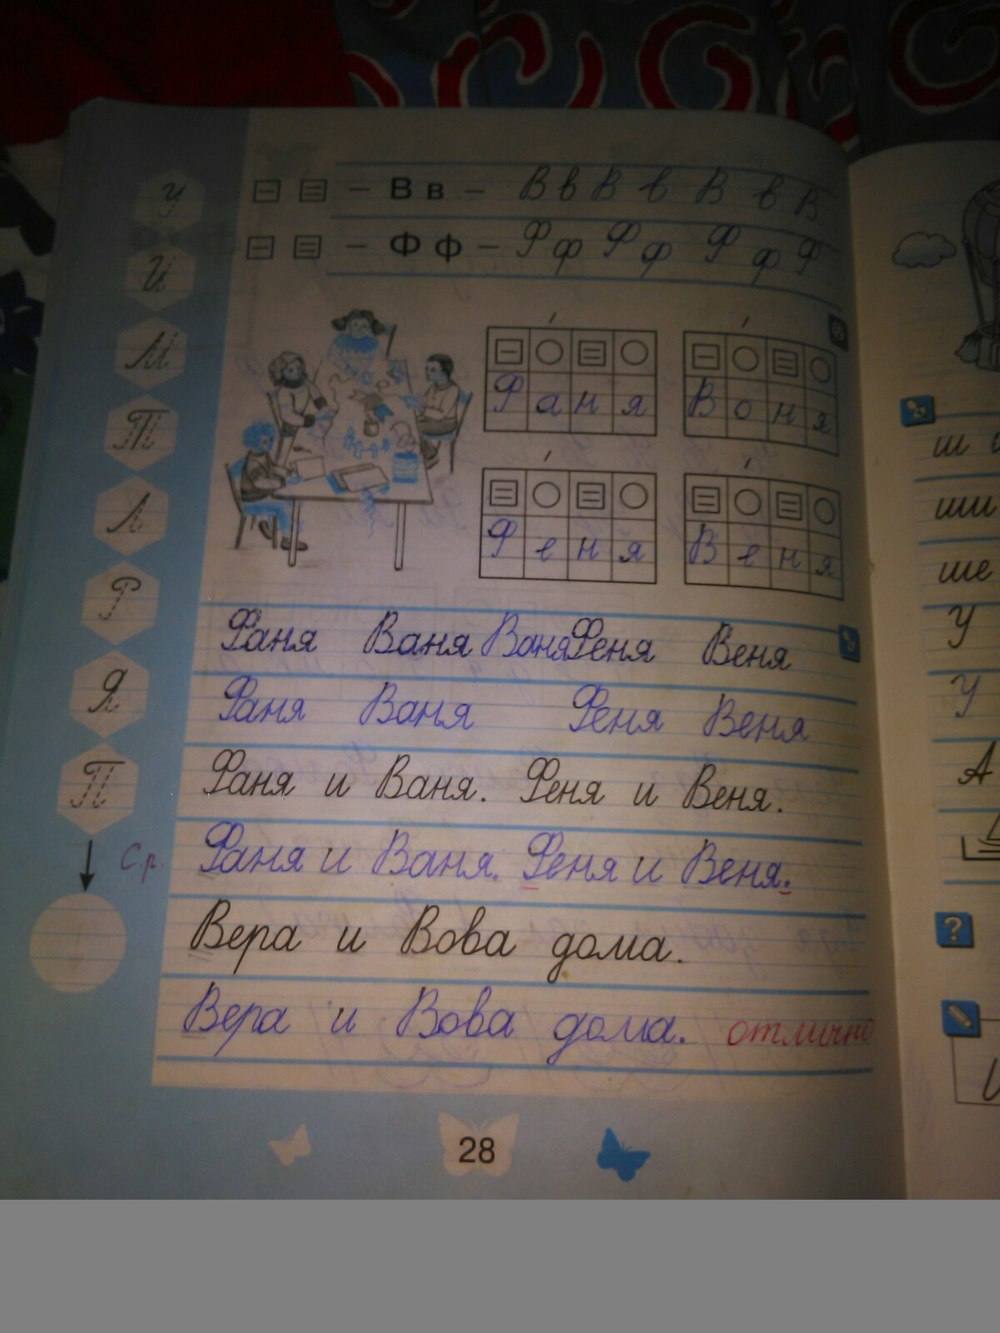 У
И
М
Т
Л
Р
Я
П
Ср.
– В в – В в В в В в В
– Ф ф – Ф ф Ф ф Ф ф Ф
Фаня Воня
Феня Веня
Фаня Ваня Ваня Феня Веня
Фаня Ваня Феня Веня
Фаня и Ваня. Феня и Веня.
Фаня и Ваня. Феня и Веня.
Вера и Вова дома.
Вера и Вова дома. отлично
28
ш
ши
ше
У
У
А
?